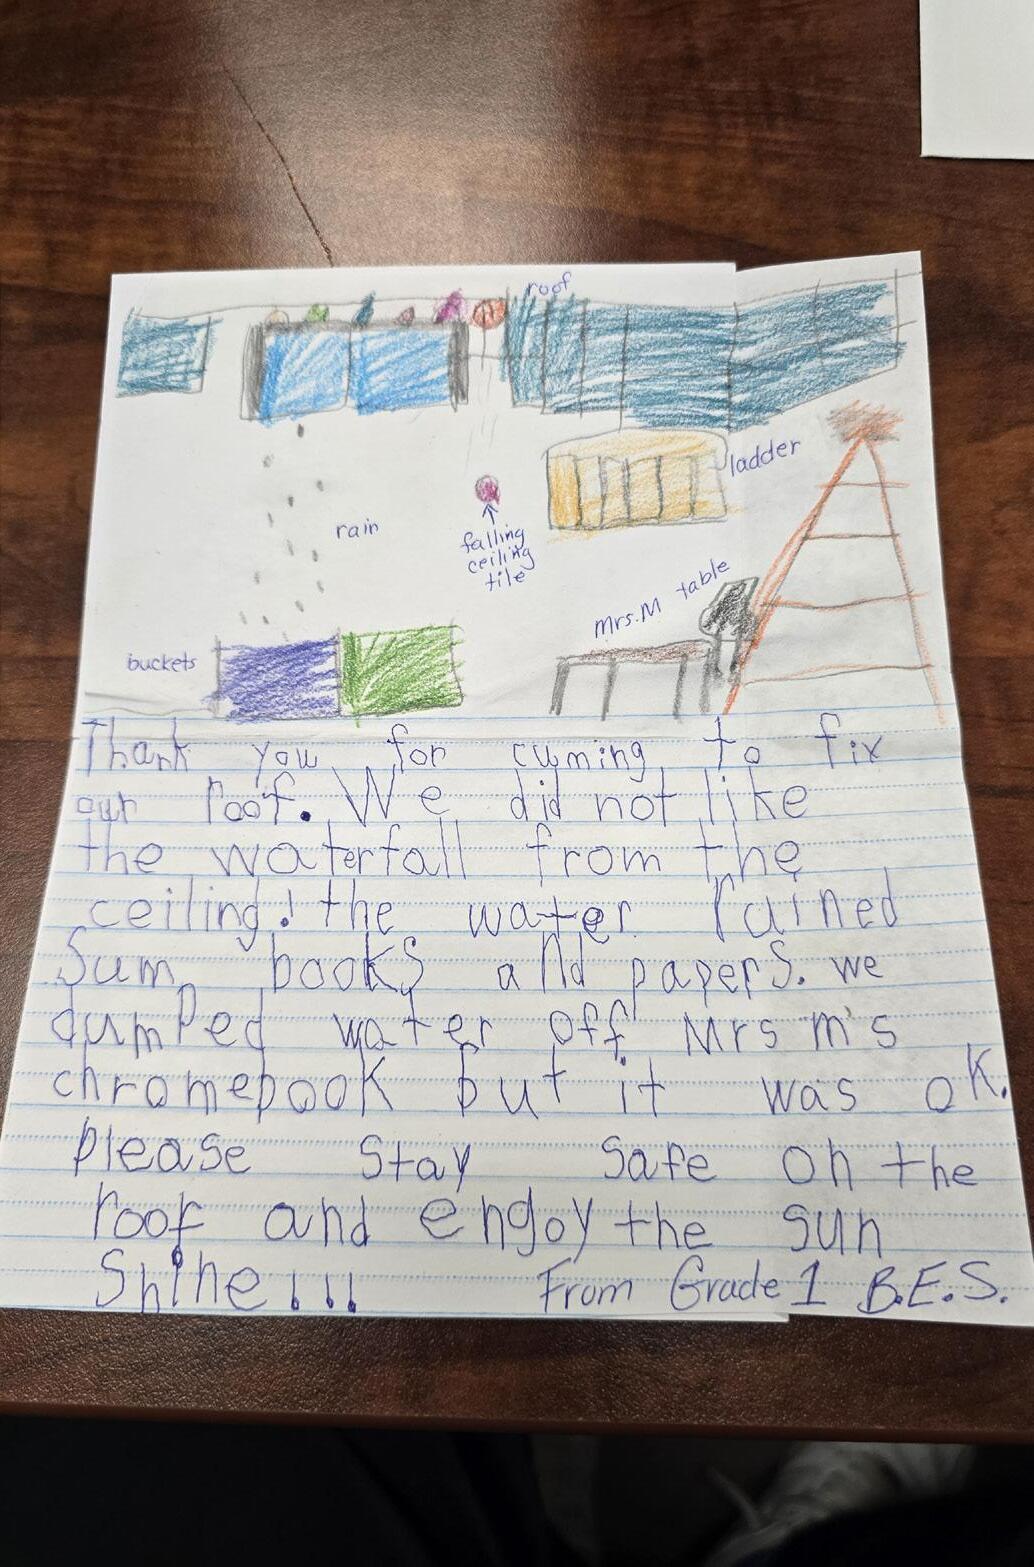 roof
ladder
rain
falling
ceiling
tile
Mrs.M table
buckets
Thank you for cuming to fix
our roof. We did not like
the waterfall from the
ceiling! the water ruined
Sum books and papers. we
dumped water off Mrs m's
chromebook but it was ok.
please stay safe on the
roof and engoy the sun
Shine!!!
From Grade 1 B.E.S.